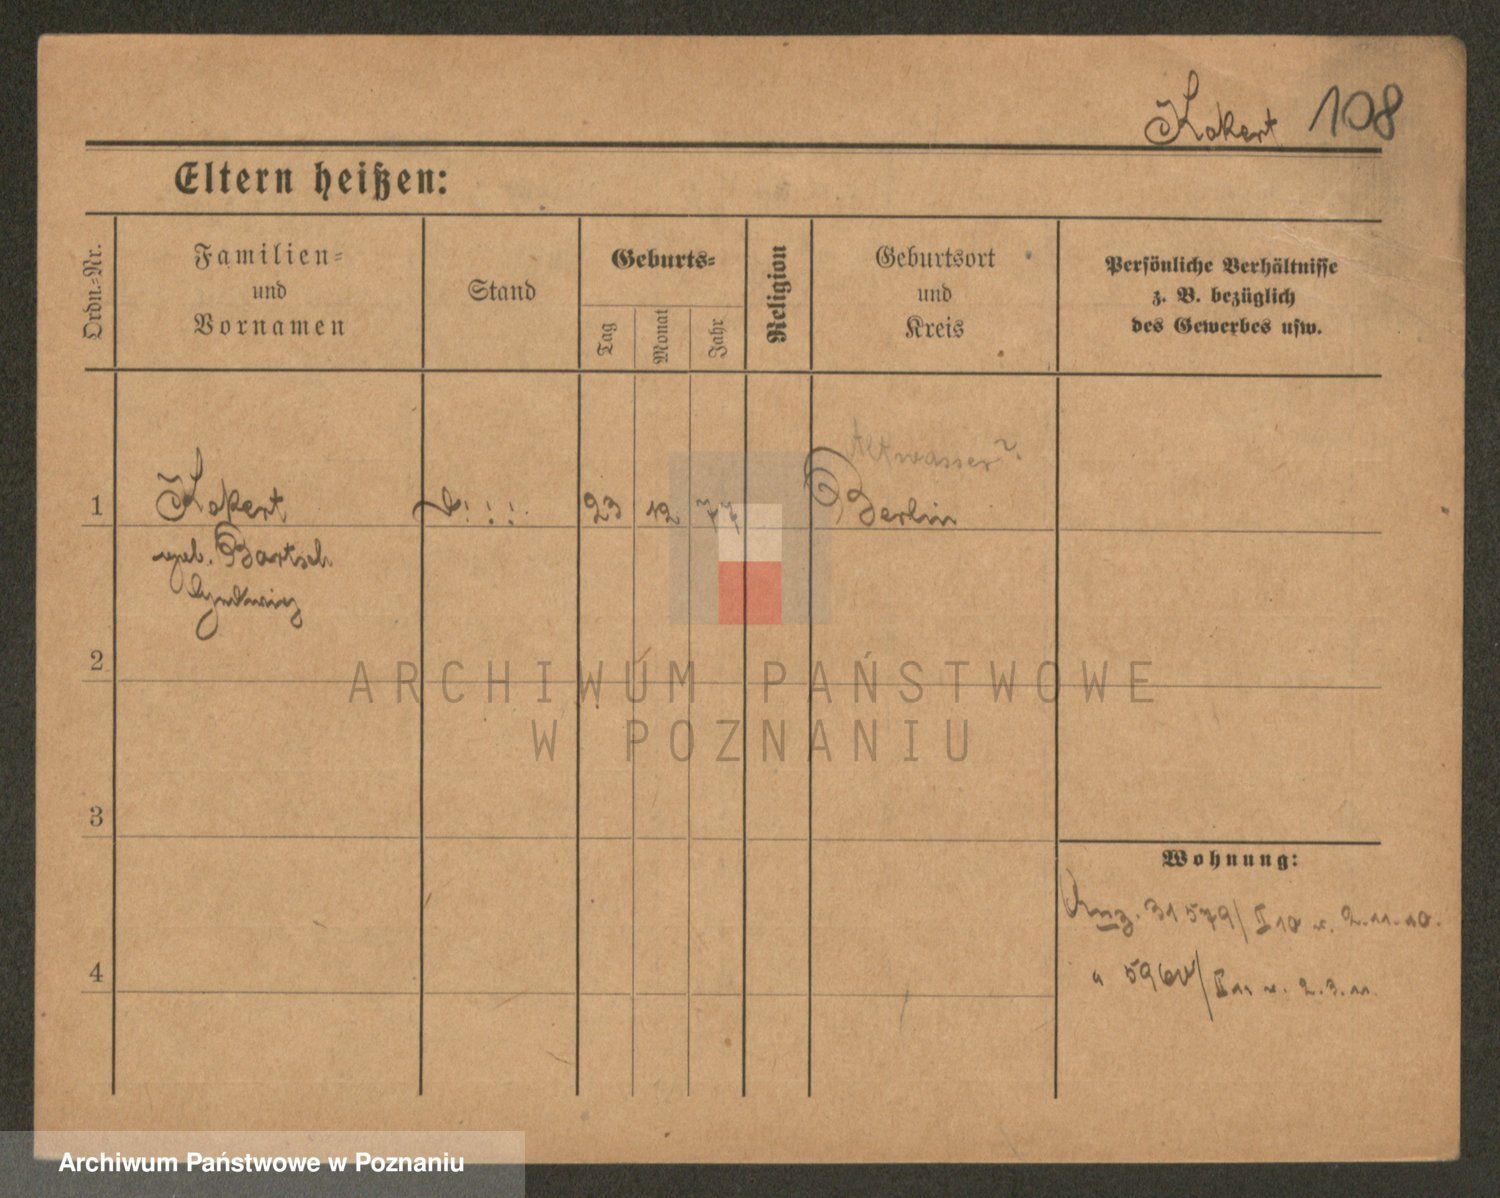 Kokert 108
Eltern heißen:
Ordn.-Nr.
Familien-
und
Vornamen
Stand
Geburts-
Tag
Monat
Jahr
Religion
Geburtsort
und
Kreis
Persönliche Verhältnisse
z. B. bezüglich
des Gewerbes usw.
Altwasser?
1 Kokert 23 12 77 Berlin
geb. Bartsch
Hedwig
2
ARCHIWUM PAŃSTWOWE
W POZNANIU
3
Wohnung:
Anz. 31579/I 10 v. 2.11.10.
4
" 5960/I 11 v. 2.3.11.
Archiwum Państwowe w Poznaniu